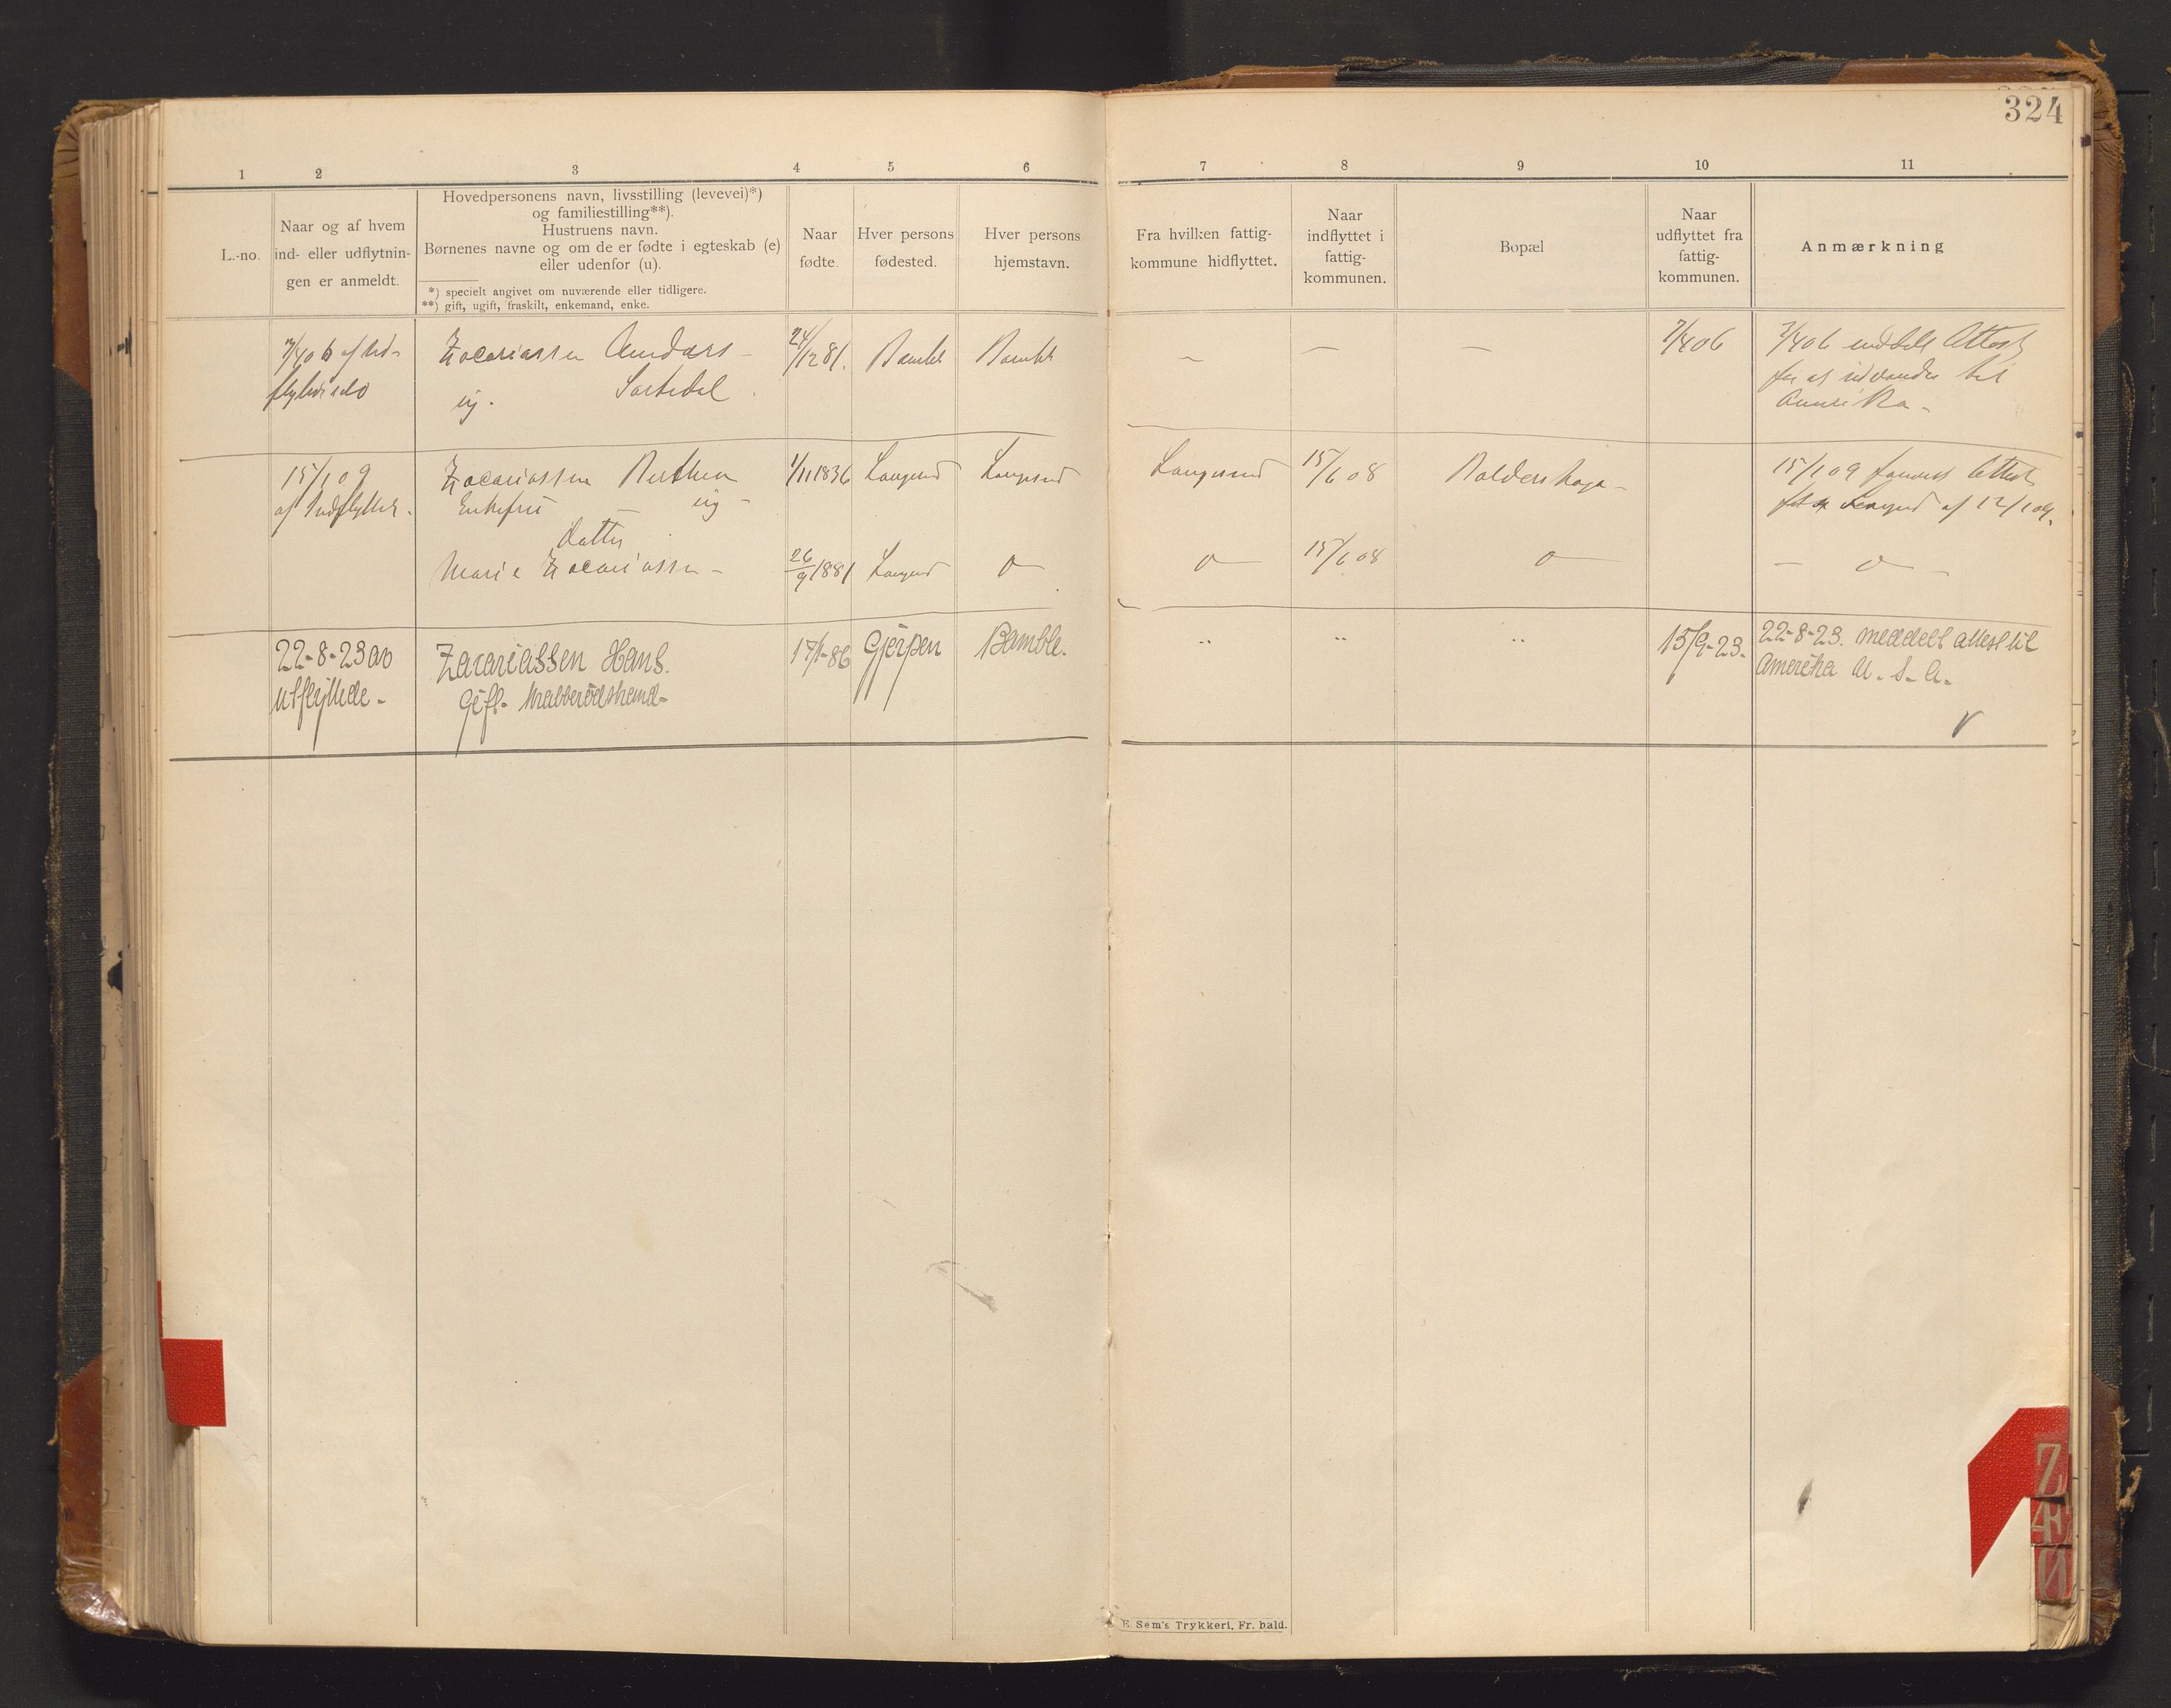 324
1 2 3 4 5 6 7 8 9 10 11
L.-no.
Naar og af hvem
ind- eller udflytnin-
gen er anmeldt.
Hovedpersonens navn, livsstilling (levevei)*)
og familiestilling**).
Hustruens navn.
Børnenes navne og om de er fødte i egteskab (e)
eller udenfor (u).
*) specielt angivet om nuværende eller tidligere.
**) gift, ugift, fraskilt, enkemand, enke.
Naar
fødte.
Hver persons
fødested.
Hver persons
hjemstavn.
Fra hvilken fattig-
kommune hidflyttet.
Naar
indflyttet i
fattig-
kommunen.
Bopæl
Naar
udflyttet fra
fattig-
kommunen.
Anmærkning
7/4 06 af Ud-
Zacariassen Anders – 24/12 81. Bamble Bamble – – – 7/4 06 7/4 06 meddelt Attest
ug. for at udvandre til
Amerika –
15/1 09 Zacariassen 1/11 1836 Langesund Langesund Langesund 15/6 08
af Indflytter. Enkefru – 15/1 09
Datter
Marie Zacariassen – 26/9 1881 Langesund 15/6 08
22-8-23 av Zacariassen Hans. Gjerpen Bamble. " " " 15/9-23. 22-8-23. meddelt attest til
Utflyttede – Gift – Amerika U. S. A.
E. Sem's Trykkeri, Fr. hald.
Z
Æ